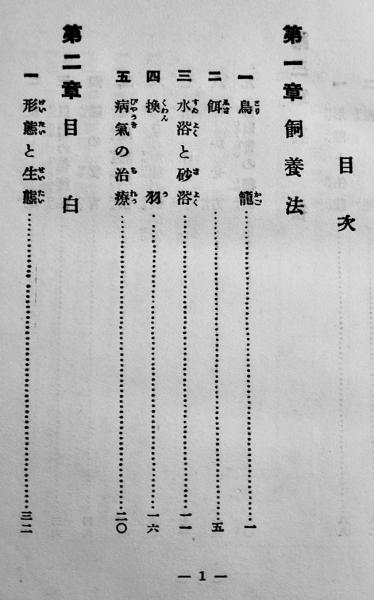 目次
第一章 飼養法
一 鳥籠……一
二 餌……五
三 水浴と砂浴……一一
四 換羽……一六
五 病氣の治療……二〇
第二章 目白
一 形態と生態……三二
— 1 —